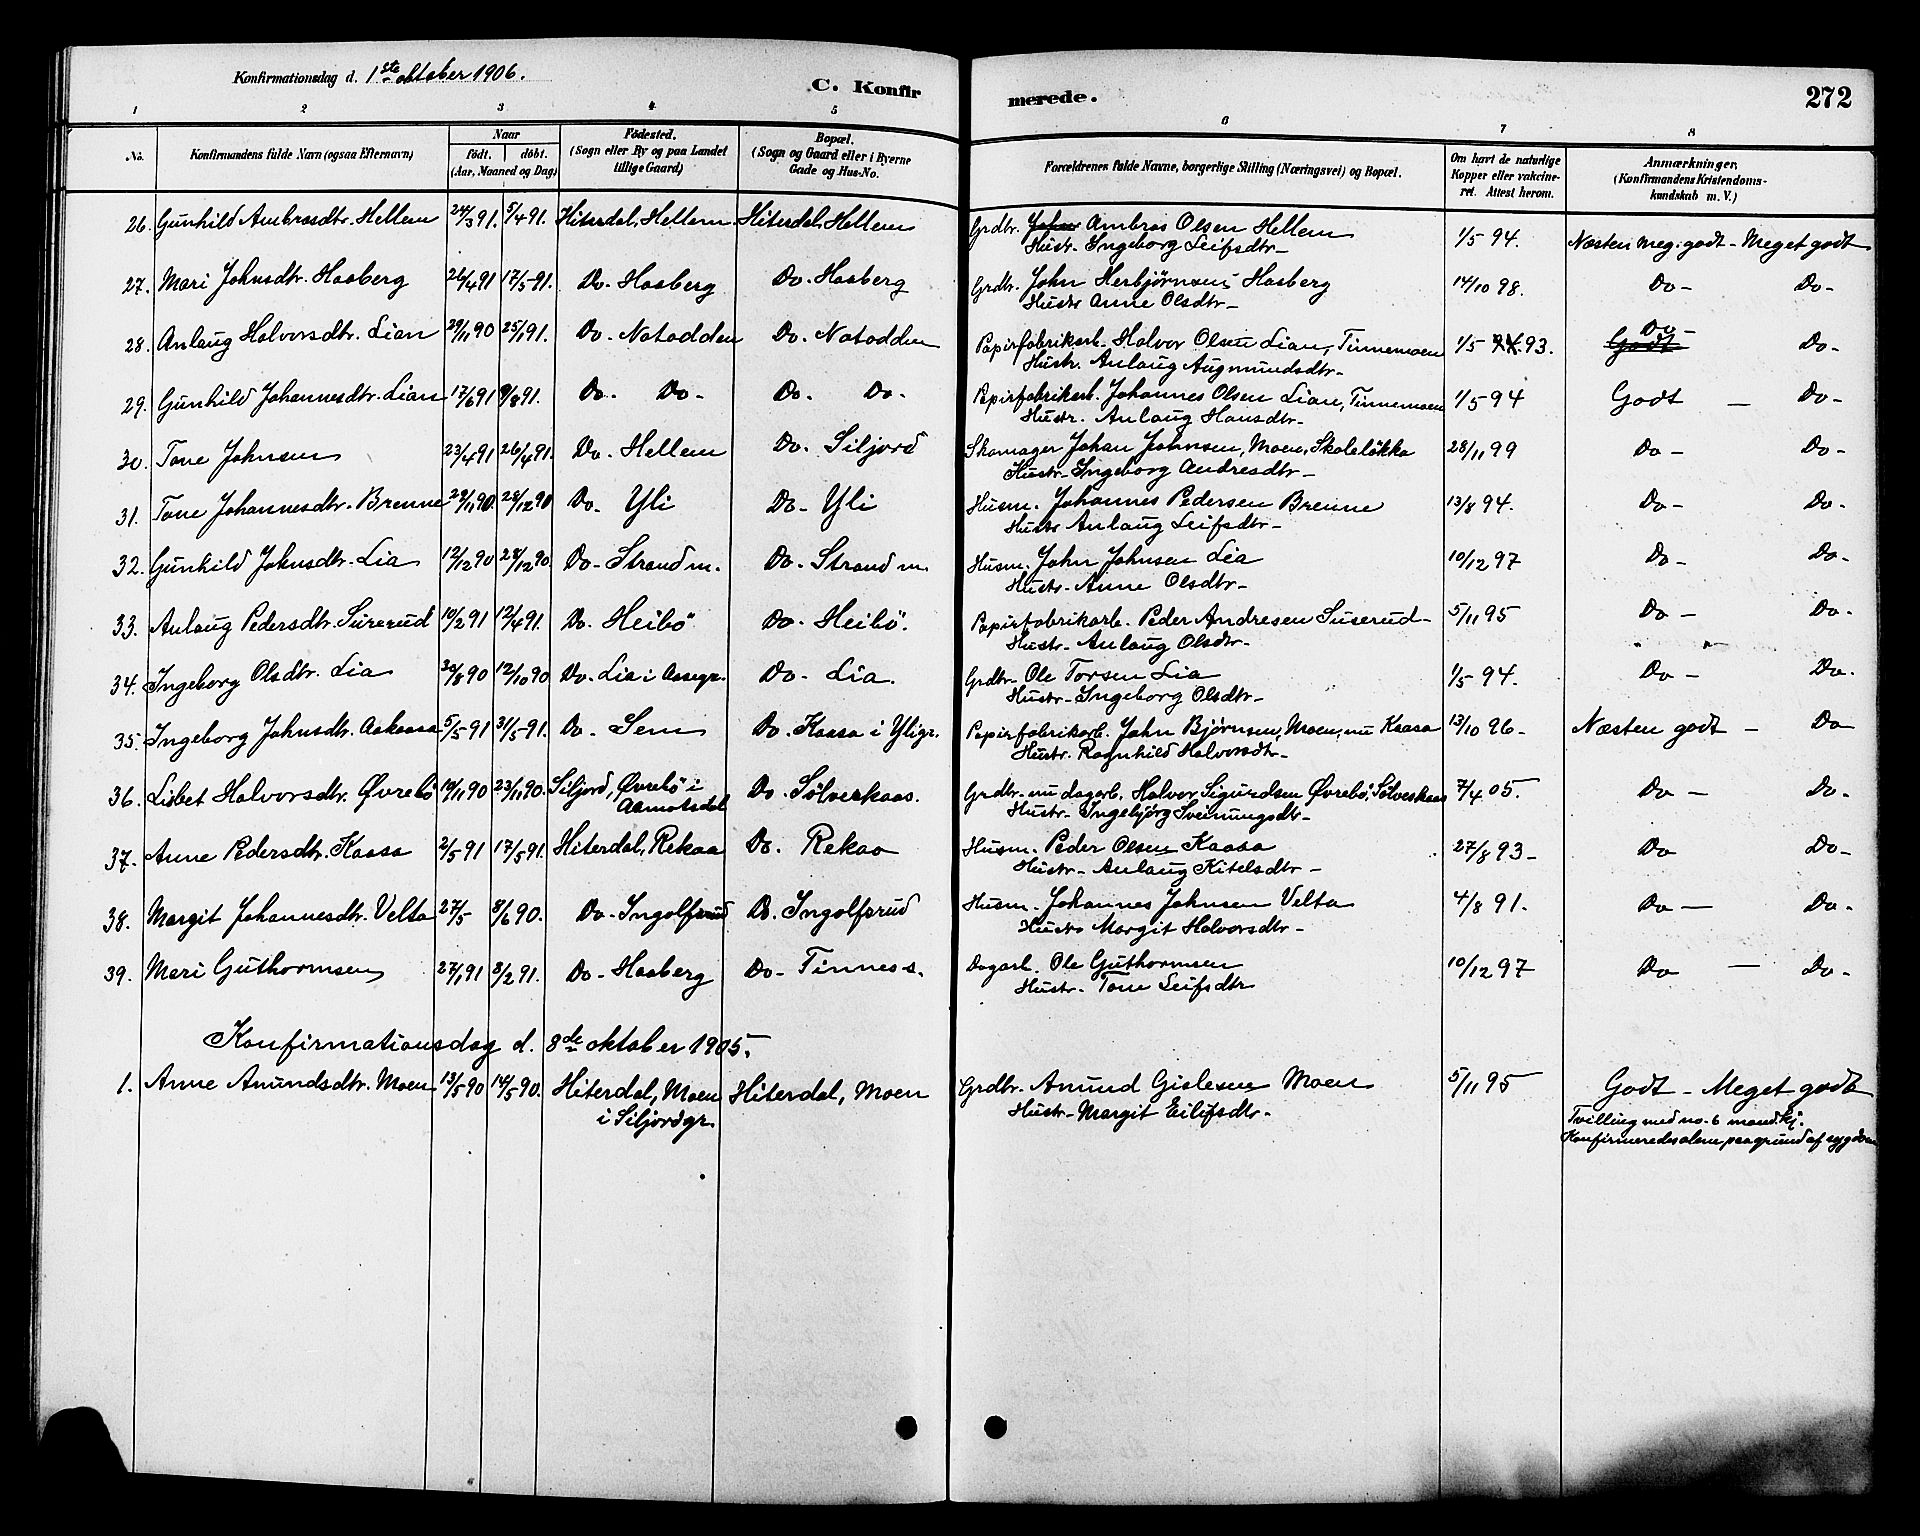 Konfirmationsdag d. 1ste oktober 1906.
C. Konfir
merede.
272
1 2 3 4 5 6 7 8
No. Konfirmandens fulde Navn (ogsaa Efternavn) Naar födt. döbt. (Aar, Maaned og Dag) Födested. (Sogn eller By og paa Landet tillige Gaard) Bopæl. (Sogn og Gaard eller i Byerne Gade og Hus-No. Forældrenes fulde Navne, borgerlige Stilling (Næringsvei) og Bopæl. Om havt de naturlige Kopper eller vakcineret. Attest herom. Anmærkninger. (Konfirmandens Kristendomskundskab m. V.)
26. Gunhild Ambrosdtr. Hellem 24/3 91. 5/4 91. Hiterdal, Hellem Hiterdal, Hellem Grdbr. Johan Ambros Olsen Hellem 1/5 94. Næsten meg. godt - Meget godt
Hustr. Ingeborg Leifsdtr-
27. Mari Johnsdtr. Haaberg 26/4 91 17/5 91. Do- Haaberg Do- Haaberg Grdbr. John Herbjørnsen Haaberg 14/10 98. Do- Do-
Hustr Anne Olsdtr-
28. Anlaug Halvorsdtr. Lian 29/11 90 25/1 91. Do- Notodden Do. Notodden Papirfabrikarb. Halvor Olsen Lian, Tinnemoen 1/5 94. 93. Godt Do- Do-
Hustr. Anlaug Augmundsdtr-
29. Gunhild Johannesdtr. Lian 17/6 91 9/8 91. Do. Do- Do. Do- Papirfabrikarb. Johannes Olsen Lian, Tinnemoen 1/5 94 Godt - Do-
Hustr. Anlaug Hansdtr-
30. Tone Johnsen 23/4 91 26/4 91. Do. Hellem Do. Siljord Skomager Johan Johnsen, Moen, Skoleløkka 28/11 99 Do- Do-
Hustr- Ingeborg Andresdtr-
31. Tone Johannesdtr. Brenne 29/11 90. 28/12 90 Do- Yli Do- Yli Husm. Johannes Pedersen Brenne 13/8 94. Do- Do-
Hustr Anlaug Leifsdtr-
32. Gunhild Johnsdtr. Lia 12/12 90 28/12 90. Do- Strand m. Do- Strand m. Husm. John Johnsen Lia 10/12 97 Do- Do-
Hustr- Anne Olsdtr-
33. Anlaug Pedersdtr. Suserud 10/2 91 12/4 91. Do. Heibö Do- Heibö. Papirfabrikarb. Peder Andresen Suserud- 5/11 95 Do- Do-
Hustr- Anlaug Olsdtr-
34. Ingeborg Olsdtr. Lia 30/8 90 12/10 90 Do- Lia i Aasegr. Do- Lia. Grdbr- Ole Torsen Lia 1/5 94. Do- Do.
Hustr- Ingeborg Olsdtr-
35. Ingeborg Johnsdtr. Aakaasa 5/5 91 31/5 91. Do- Sem Do. Kaasa i Yligr. Papirfabrikarb. John Bjørnsen, Moen, nu Kaasa 13/10 96- Næsten godt - Do
Hustr. Ragnhild Halvorsdtr-
36. Lisbet Halvorsdtr. Øvrebö 10/11 90 23/11 90. Siljord, Øvrebö i Aamotsdal Do- Sølverkaas. Grdbr- nu dagarb. Halvor Sigurdsen Øvrebö, Sølveskaas 7/4 05. Do- Do-
Hustr- Ingebjørg Sveinungsdtr-
37. Anne Pedersdtr. Kaasa 2/5 91 17/5 91. Hiterdal, Rekaa Do. Rekaa Husm. Peder Olsen Kaasa 27/8 93- Do Do-
Hustr- Anlaug Kitelsdtr-
38. Margit Johannesdtr. Velta 27/5 8/6 90. Do- Ingolfsrud Do. Ingolfsrud Husm. Johannes Johnsen Velta 4/8 91. Do- Do-
Hustr Margit Halvorsdtr-
39. Mari Guthormsen 27/1 91 8/2 91. Do- Haaberg Do- Tinness. Dagarb. Ole Guthormsen 10/12 97 Do - Do-
Hustr- Tone Leifsdtr
Konfirmationsdag d. 8de oktober 1905.
1. Anne Anundsdtr. Moen 13/5 90 14/5 90. Hiterdal, Moen i Siljordgr. Hiterdal, Moen Grdbr. Anund Gislesen Moen 5/11 95 Godt - Meget godt
Hustr- Margit Eilifsdtr-
Tvilling med no. 6 mandkj.
Konfirmeredes alene paa grund af sygdom